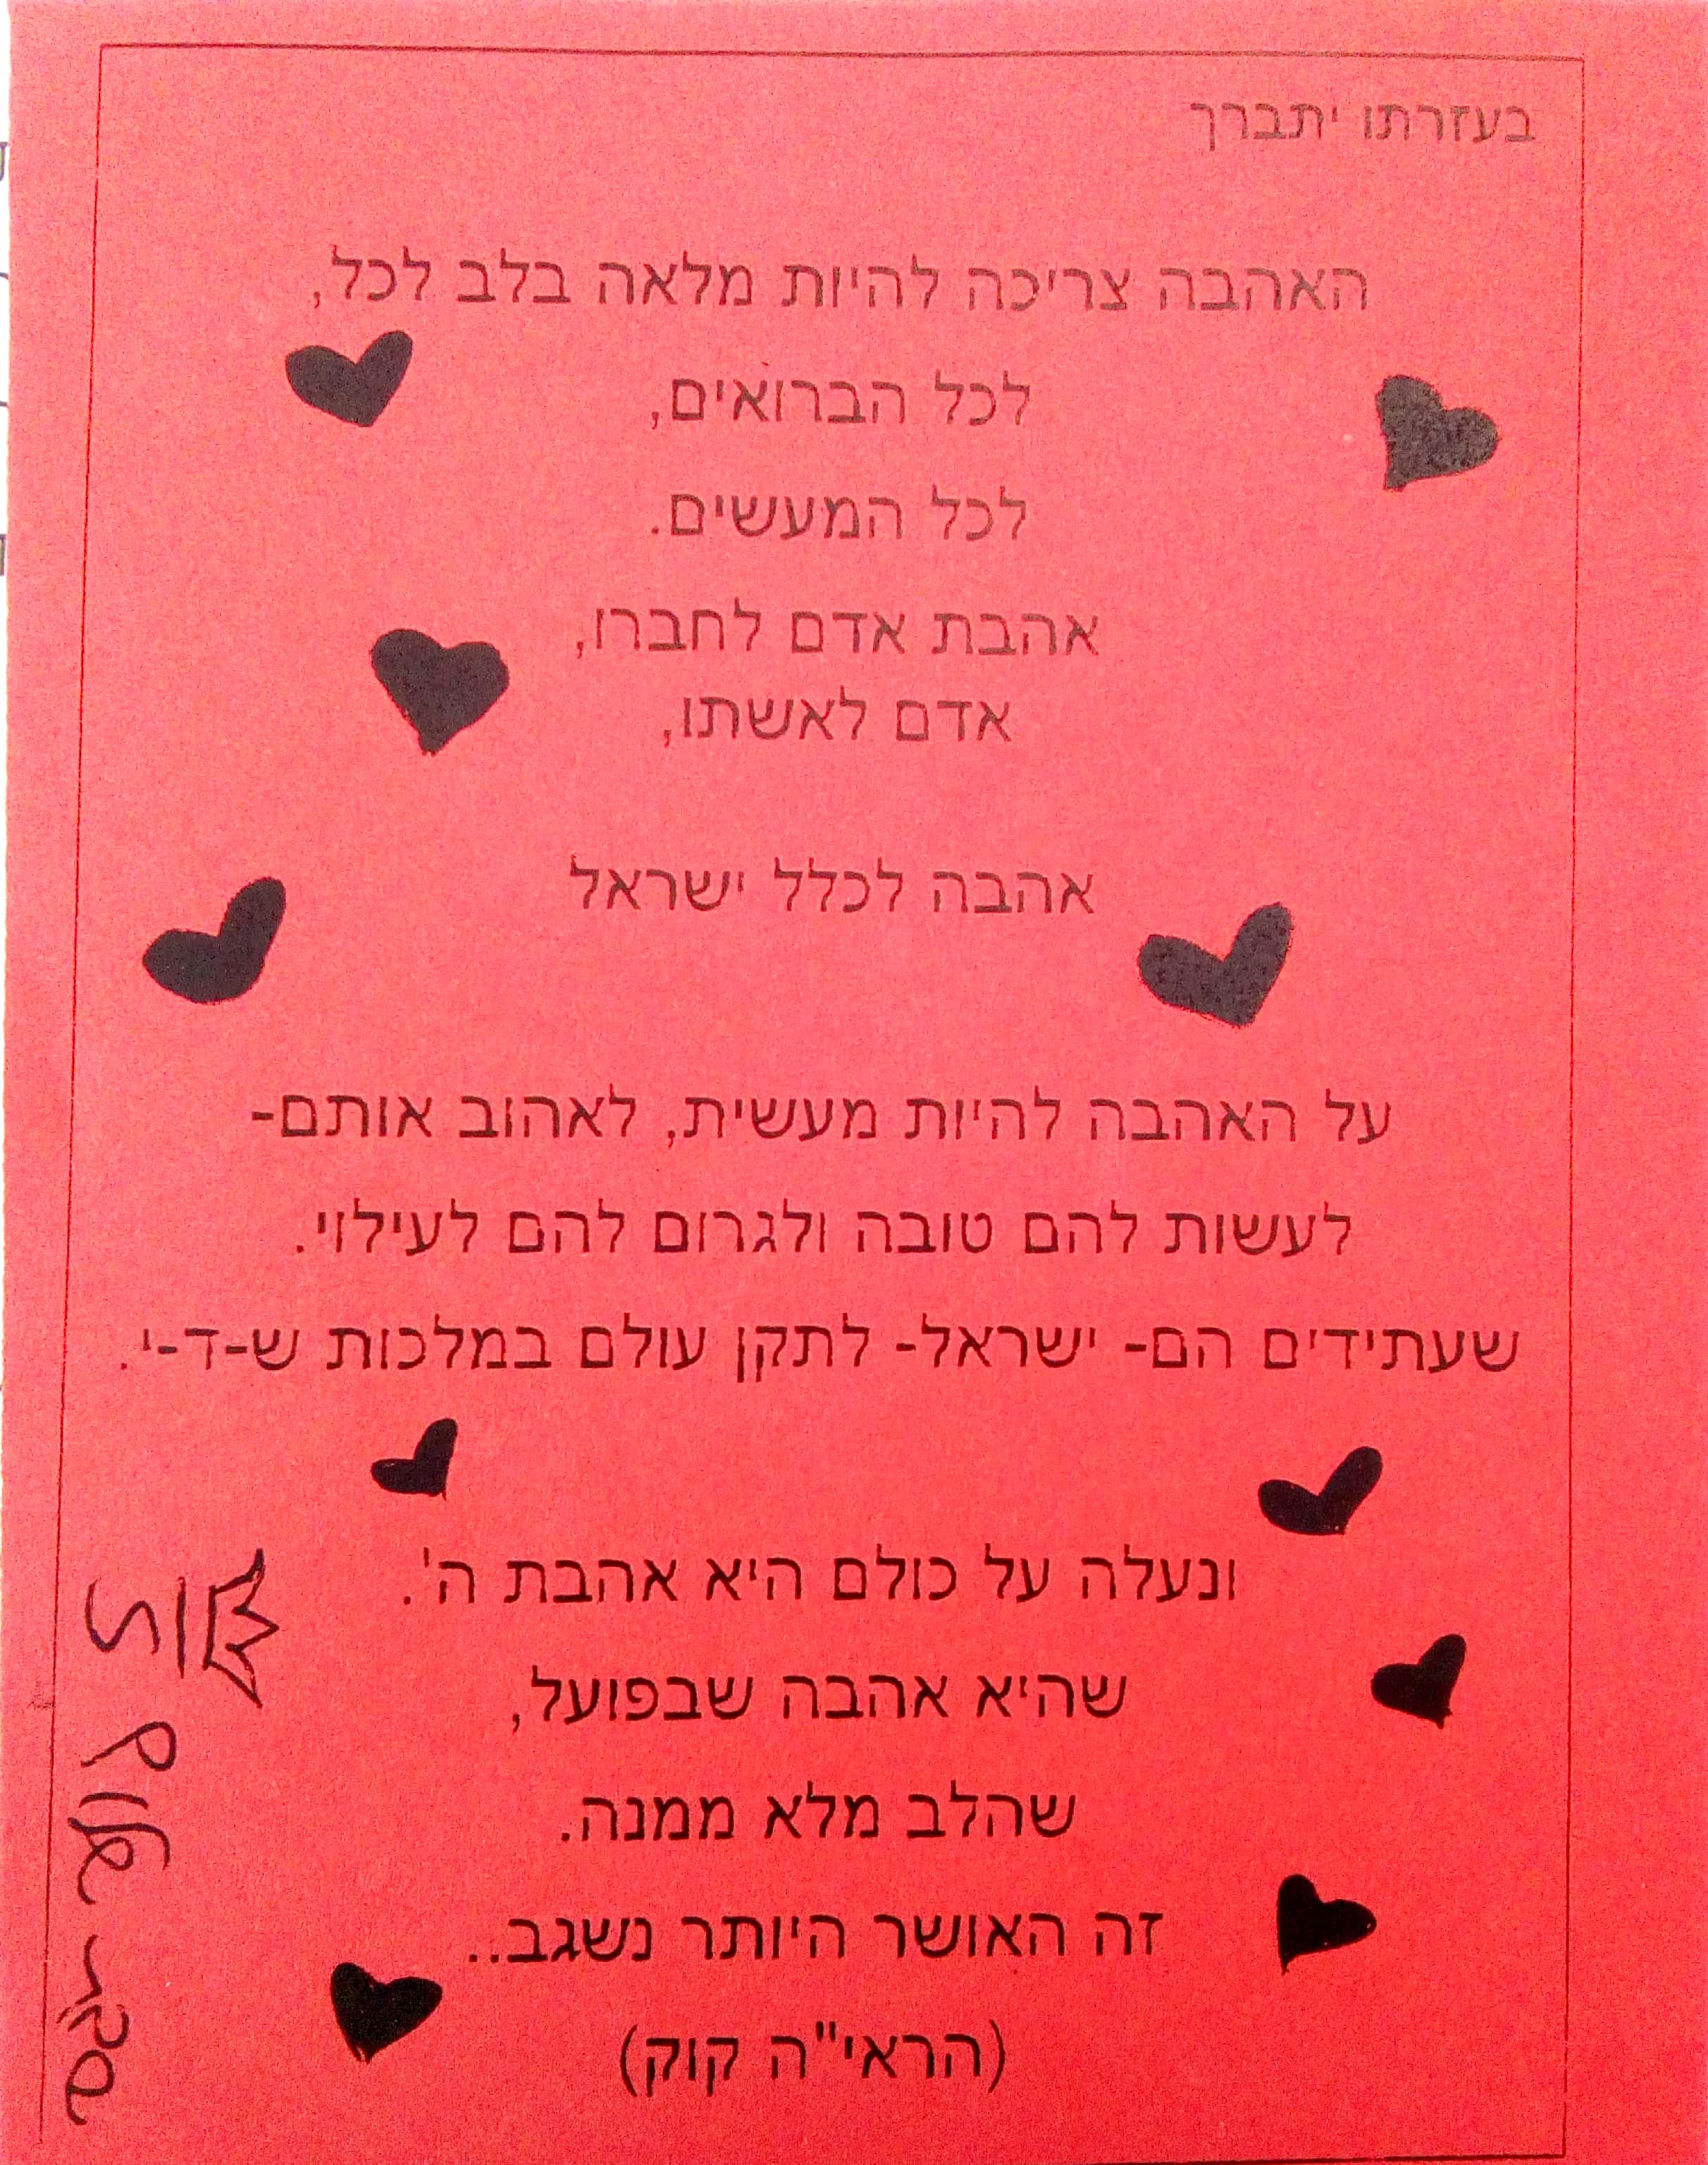 בעזרתו יתברך
האהבה צריכה להיות מלאה בלב לכל,
לכל הברואים,
לכל המעשים.
אהבת אדם לחברו,
אדם לאשתו,
אהבה לכלל ישראל
על האהבה להיות מעשית, לאהוב אותם-
לעשות להם טובה ולגרום להם לעילוי.
שעתידים הם- ישראל- לתקן עולם במלכות ש-ד-י.
ונעלה על כולם היא אהבת ה'.
שהיא אהבה שבפועל,
שהלב מלא ממנה.
זה האושר היותר נשגב..
(הראי"ה קוק)